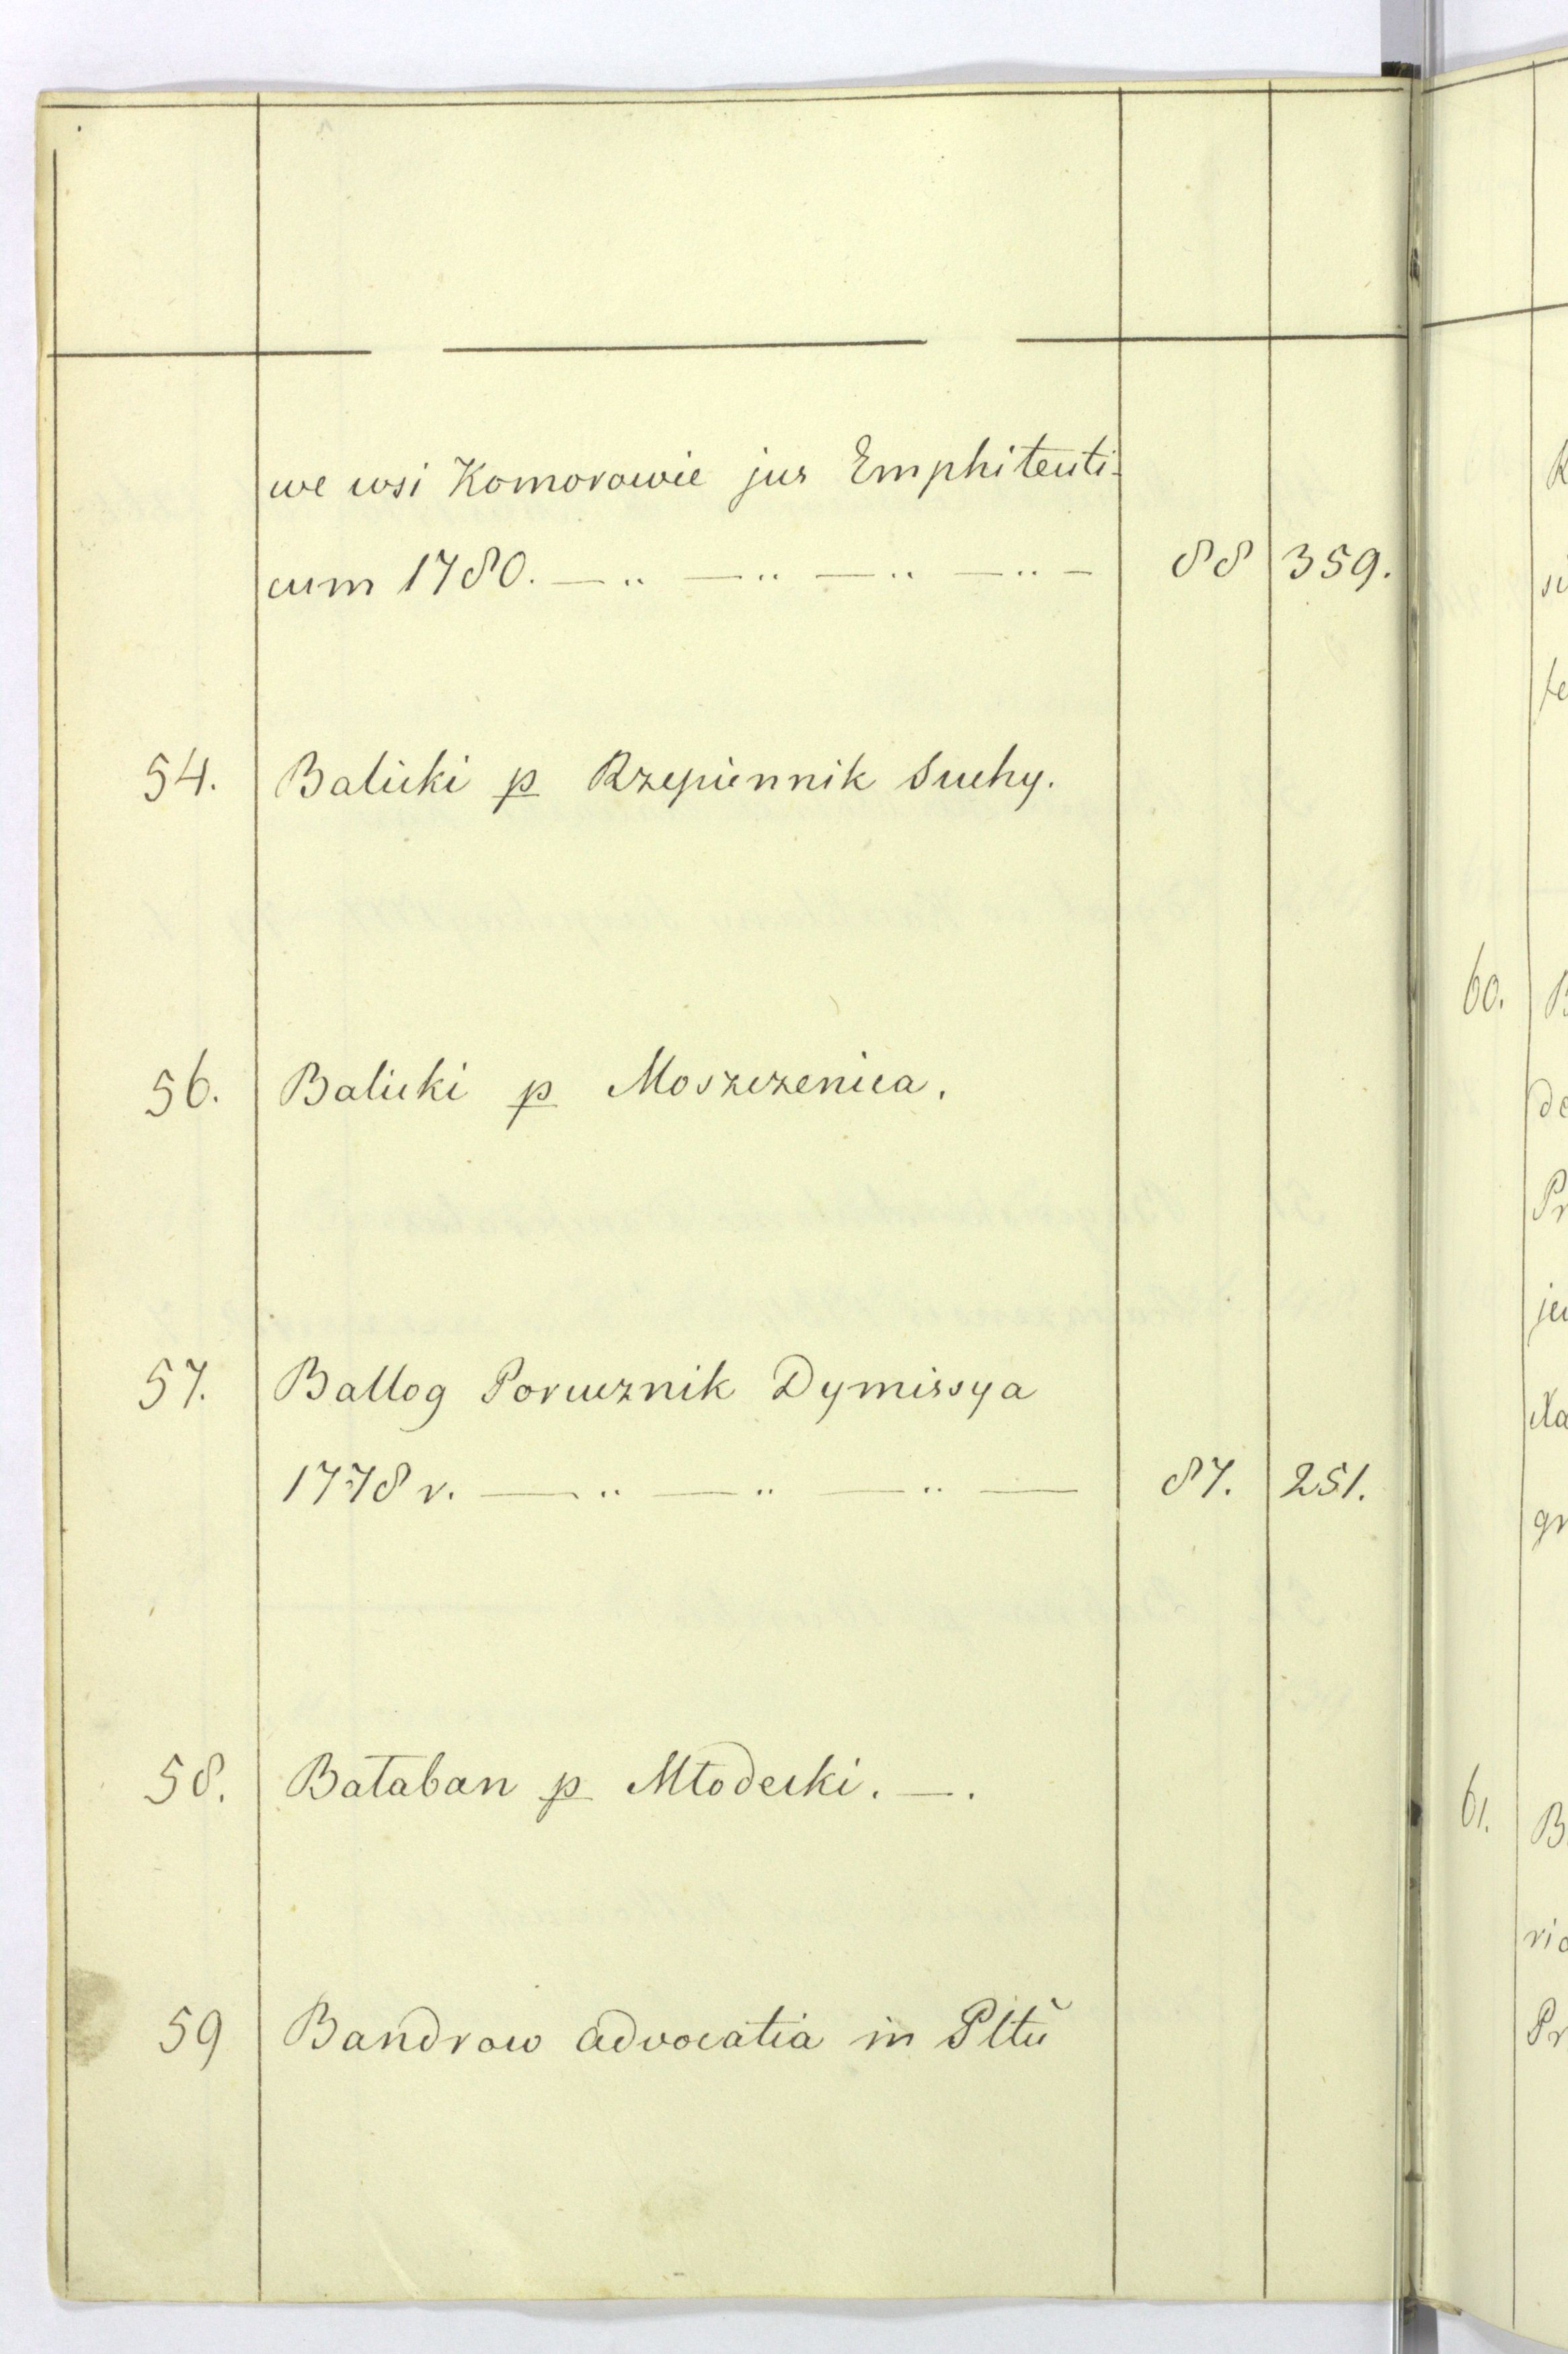 we wsi Komorowie jus Emphiteuti-
cum 1780. — .. — .. — .. — .. — 88 359.
54. Balicki p Rzepiennik Suchy.
56. Balicki p Moszczenica.
57. Ballog Porucznik Dymissya
1778 r. — .. — .. — .. — 87. 251.
58. Bałaban p Młodecki. —.
59 Bandrow advocatia in Pltŭ
60.
61.